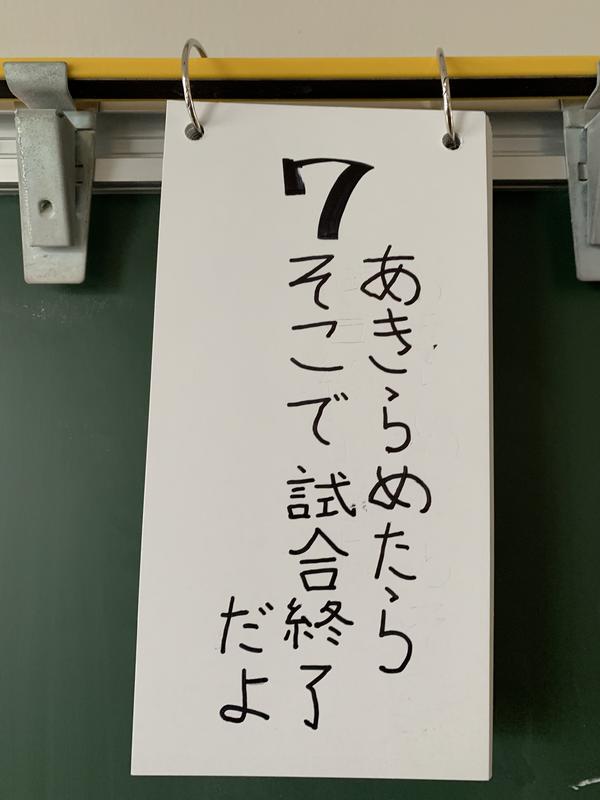 7
あきらめたら
そこで試合終了
だよ